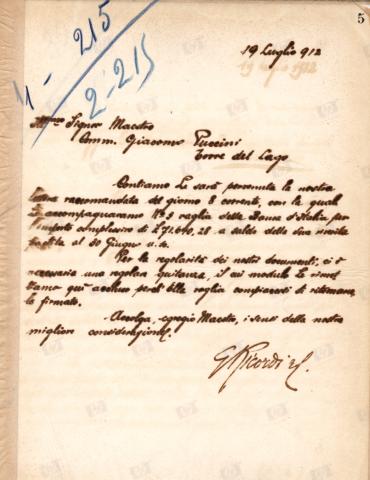 5
215
2-215
19 Luglio 912
Signor Maestro
Comm. Giacomo Puccini
Torre del Lago
Contiamo Le sarà pervenuta la nostra
raccomandata del giorno 8 corrente, con la qual
accompagnavamo No 3 vaglia della Banca d'Italia per
l'importo complessivo di 28 a saldo delle sue
partite al 30 Giugno u.s.
Per la regolarità dei nostri documenti, ci è
necessaria una regolare quitanza, il cui modulo Le rimet
tiamo qui accluso perch'Ella voglia compiacersi di ritornarce
lo firmato.
Accolga, egregio Maestro, i sensi della nostra
migliore considerazione.
G Ricordi e C.